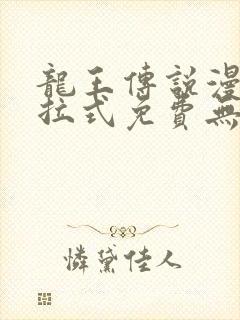 龍王傳說漫
拉式免費無
憐黛佳人